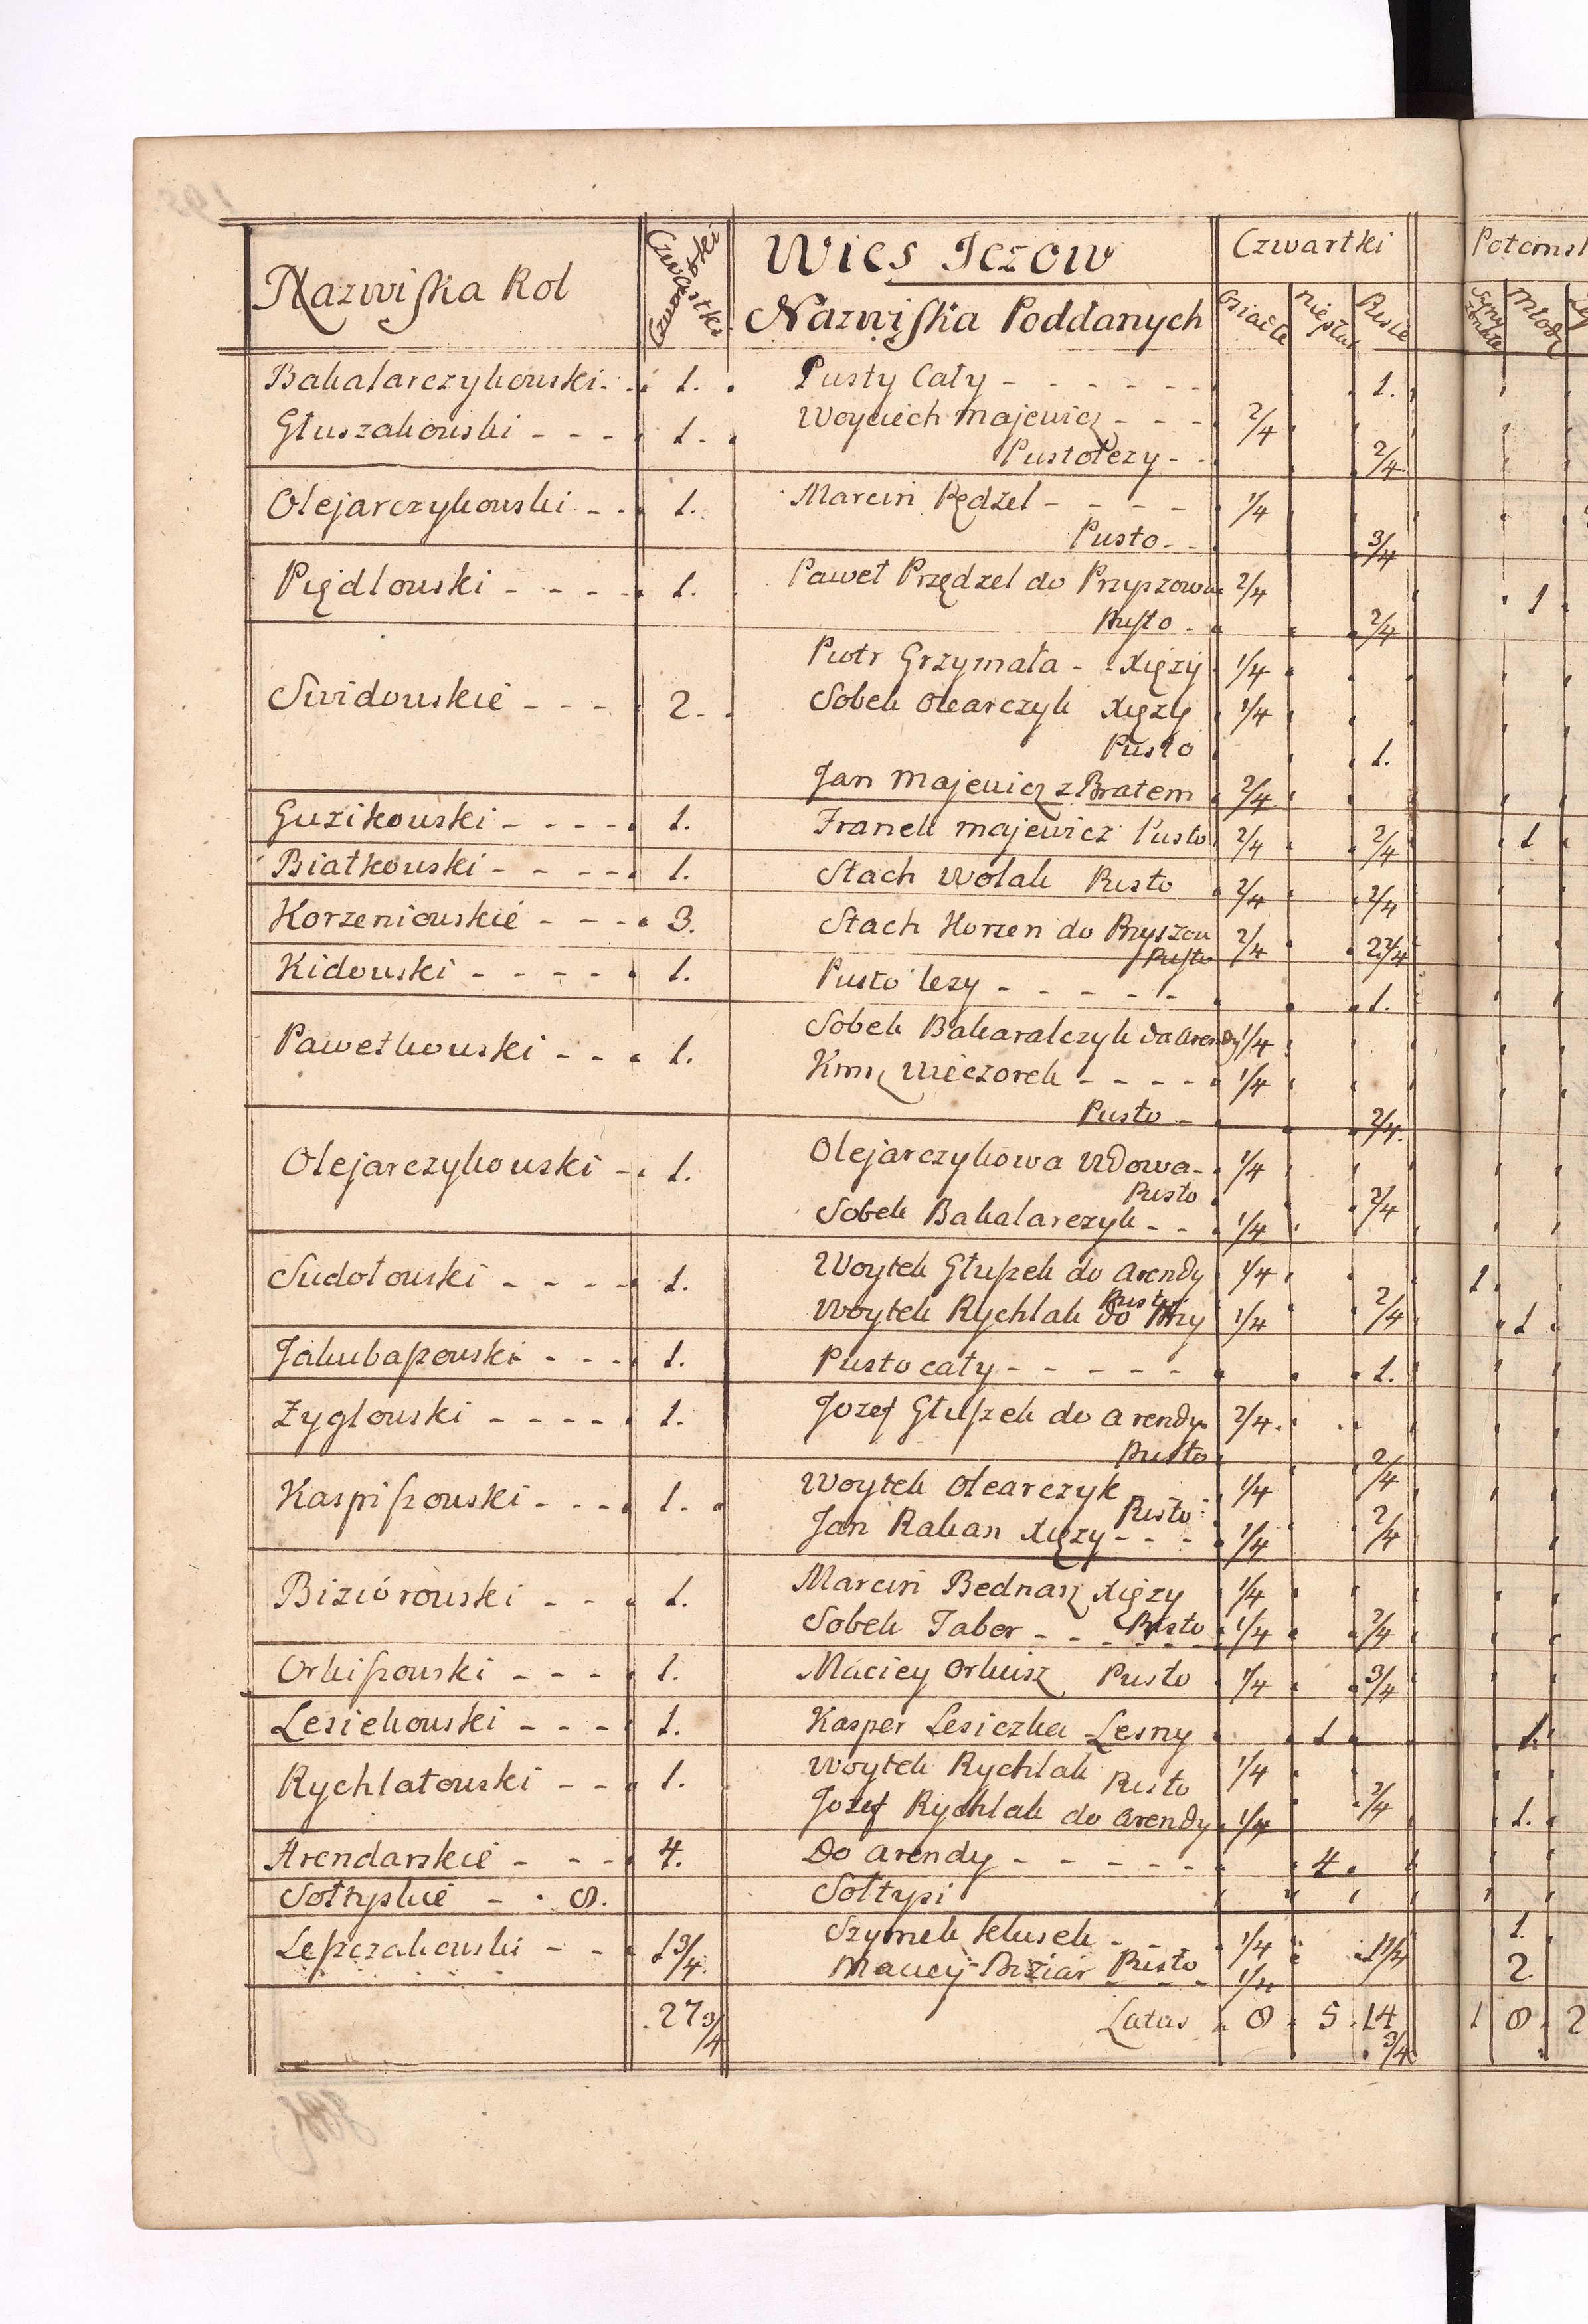 Nazwiska Rol Czwartki Wies Jezow Czwartki Potomst
Nazwiska Poddanych Osiadłe Puste Młodz
Bakalarczykowski 1. Pusty Cały 1.
Głuszakowski 1. Woyciech Majewicz 2/4
Pusto lezy 2/4
Olejarczykowski 1. Marcin Pędzel 1/4
Pusto 3/4
Piędlowski 1. Paweł Przędzel do Przyszowa 2/4 1
Pusto 2/4
Piotr Grzymała Xięzy 1/4
Swidowskie 2. Sobek Olearczyk Xięzy 1/4
Pusto 1.
Jan Majewicz z Bratem 2/4
Guzikowski 1. Franek Majewicz Pusto 2/4 2/4 1
Białkowski 1. Stach Wolak Pusto 2/4 2/4
Korzeniowskie 3. Stach Korzen do Przyszow 2/4 2 2/4
Pusto
Kidowski 1. Pusto lezy 1.
Pawełkowski 1. Sobek Bakaralczyk da Arendy 1/4
Kmić Wieczorek 1/4
Pusto 2/4.
Olejarczykowski 1. Olejarczykowa Wdowa 1/4
Pusto 2/4
Sobek Bakalarczyk 1/4
Sudołowski 1. Woytek Głuszek do Arendy 1/4 1.
Pusto 2/4
Woytek Rychlak do 1/4 1.
Jakubaszowski 1. Pusto cały 1.
Zyglowski 1. Jozef Głuszek do Arendy 2/4.
Pusto 2/4
Kaspiszowski 1. Woytek Olearczyk 1/4
Pusto 2/4
Jan Rakan Xięzy 1/4
Biziórowski 1. Marcin Bednarz Xięzy 1/4
Sobek Tabor Pusto 1/4 2/4
Orkiszowski 1. Maciey Orkisz Pusto 1/4 3/4
Lesiekowski 1. Kasper Lesiczka Lesny 1 1.
Rychlatowski 1. Woytek Rychlak 1/4
Pusto 2/4
Jozef Rychlak do Arendy 1/4 1.
Arendarskie 4. Do Arendy 4.
Sołtyskie 8. Sołtysi
Leszczakowski 1 3/4. Szymek Klusek 1/4 1.
Maciey Biziar Pusto 2.
27 3/4 Latus 8 5 14 3/4 1 8 2